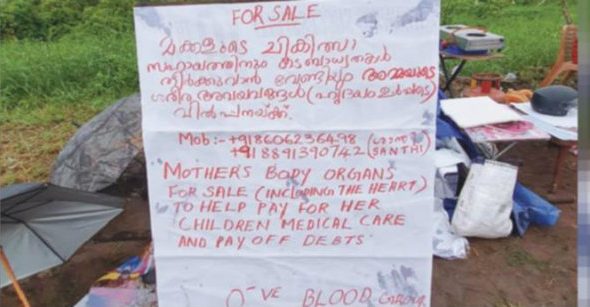 FOR SALE
മക്കളുടെ ചികിത്സാ
സഹായത്തിനും കടബാധ്യതകൾ
തീർക്കുവാൻ വേണ്ടിയും അമ്മയുടെ
ശരീര അവയവങ്ങൾ (ഹൃദയം ഉൾപ്പടെ)
വിൽപ്പനയ്ക്ക്.
Mob:- +918606236498 (ശാന്തി
+918891390742 (SANTHI)
MOTHER'S BODY ORGANS
FOR SALE (INCLUDING THE HEART)
TO HELP PAY FOR HER
CHILDREN MEDICAL CARE
AND PAY OFF DEBTS
O -VE BLOOD GROUP